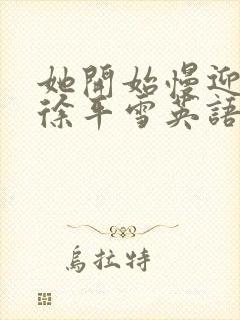 她開始慢迎
徐平雪英語
烏拉特